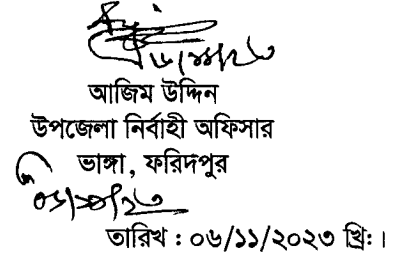 আজিম উদ্দিন
উপজেলা নির্বাহী অফিসার
ভাঙ্গা, ফরিদপুর
তারিখ : ০৬/১১/২০২৩ খ্রি: ।